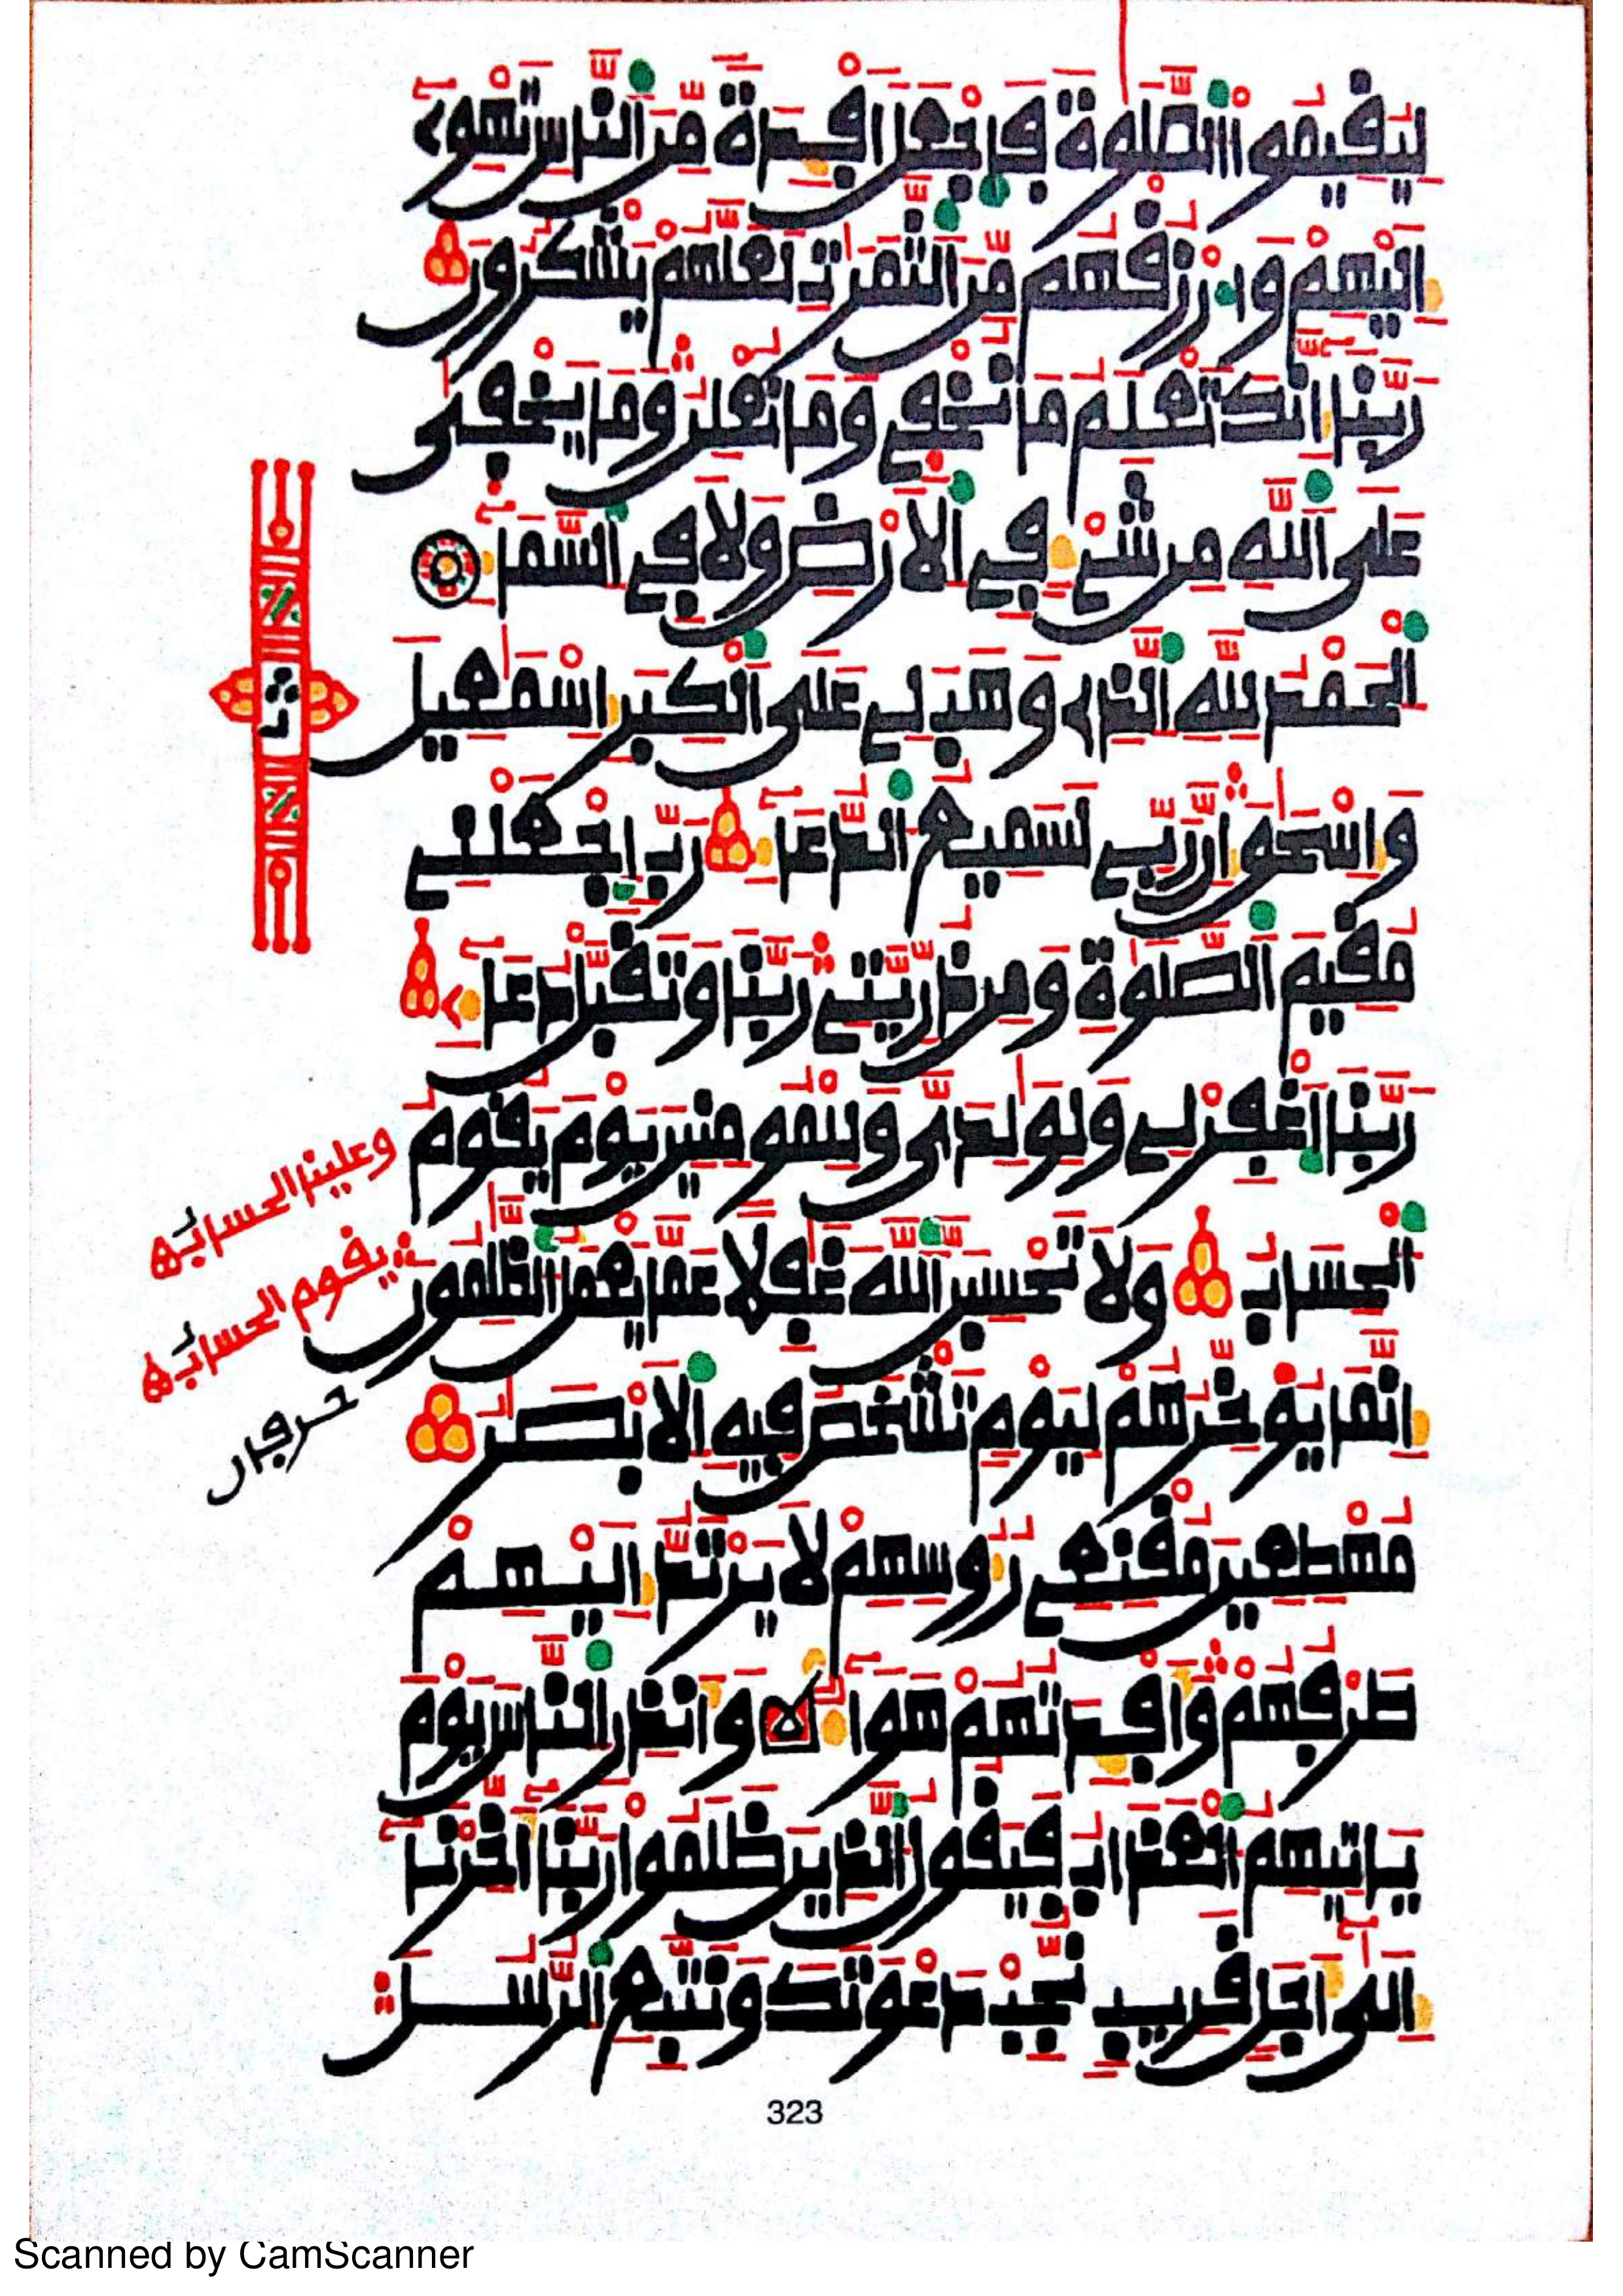 لِيُقِيمُوا۟ الصَّلَوٰةَ فَاجْعَلْ أَفْـِٕدَةً مِّنَ النَّاسِ تَهْوِىٓ
إِلَيْهِمْ وَارْزُقْهُم مِّنَ الثَّمَرَٰتِ لَعَلَّهُمْ يَشْكُرُونَ
رَبَّنَا إِنَّكَ تَعْلَمُ مَا نُخْفِى وَمَا نُعْلِنُ وَمَا يَخْفَىٰ
عَلَى اللَّهِ مِن شَىْءٍ فِى الْأَرْضِ وَلَا فِى السَّمَآءِ
الْحَمْدُ لِلَّهِ الَّذِى وَهَبَ لِى عَلَى الْكِبَرِ إِسْمَٰعِيلَ
وَإِسْحَٰقَ إِنَّ رَبِّى لَسَمِيعُ الدُّعَآءِ رَبِّ اجْعَلْنِى
مُقِيمَ الصَّلَوٰةِ وَمِن ذُرِّيَّتِى رَبَّنَا وَتَقَبَّلْ دُعَآءِ
رَبَّنَا اغْفِرْ لِى وَلِوَٰلِدَىَّ وَلِلْمُومِنِينَ يَوْمَ يَقُومُ
الْحِسَابُ وَلَا تَحْسِبَنَّ اللَّهَ غَٰفِلًا عَمَّا يَعْمَلُ الظَّٰلِمُونَ
إِنَّمَا يُوَخِّرُهُمْ لِيَوْمٍ تَشْخَصُ فِيهِ الْأَبْصَٰرُ
مُهْطِعِينَ مُقْنِعِى رُءُوسِهِمْ لَا يَرْتَدُّ إِلَيْهِمْ
طَرْفُهُمْ وَأَفْـِٕدَتُهُمْ هَوَآءٌ وَأَنذِرِ النَّاسَ يَوْمَ
يَاتِيهِمُ الْعَذَابُ فَيَقُولُ الَّذِينَ ظَلَمُوا رَبَّنَآ أَخِّرْنَآ
إِلَىٰٓ أَجَلٍ قَرِيبٍ نُّجِبْ دَعْوَتَكَ وَنَتَّبِعِ الرُّسُلَ
وعلينا الحسابُ
يقوم الحسابُ
حرفان
323
Scanned by CamScanner